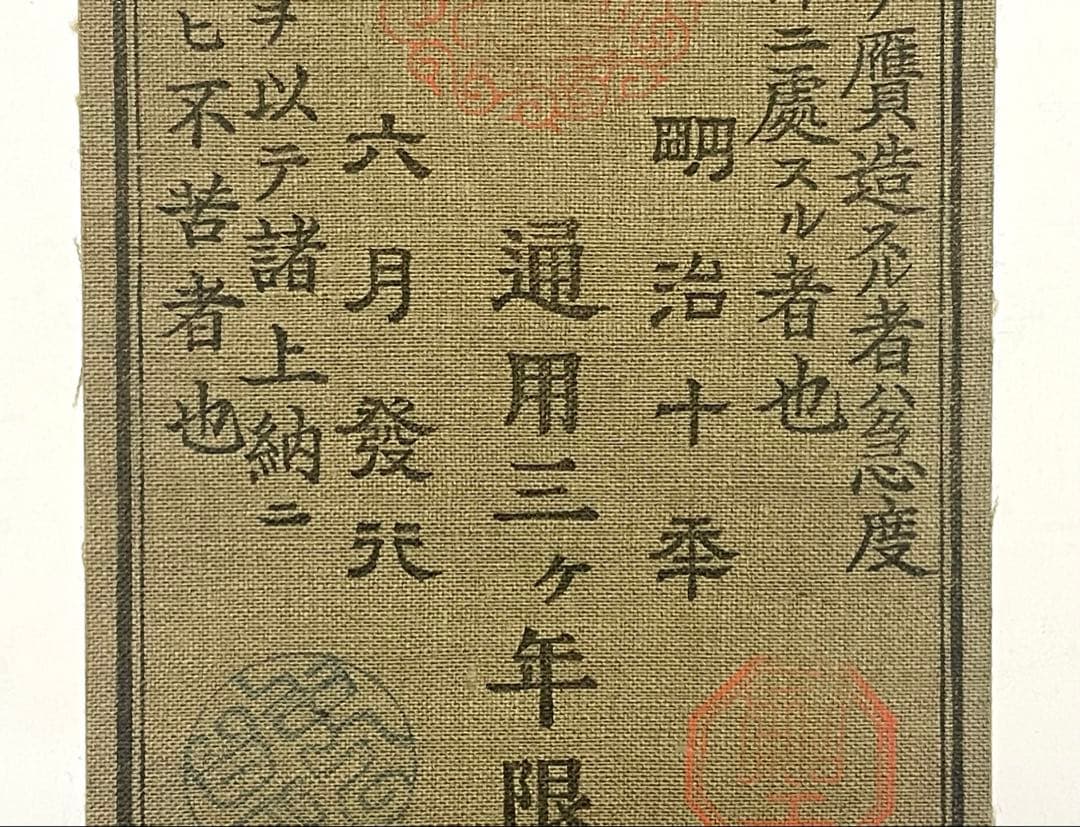 贋造スル者ハ急度
ニ處スル者也
明治十年
通用三ヶ年限
六月發行
ヲ以テ諸上納ニ
ヒ不苦者也